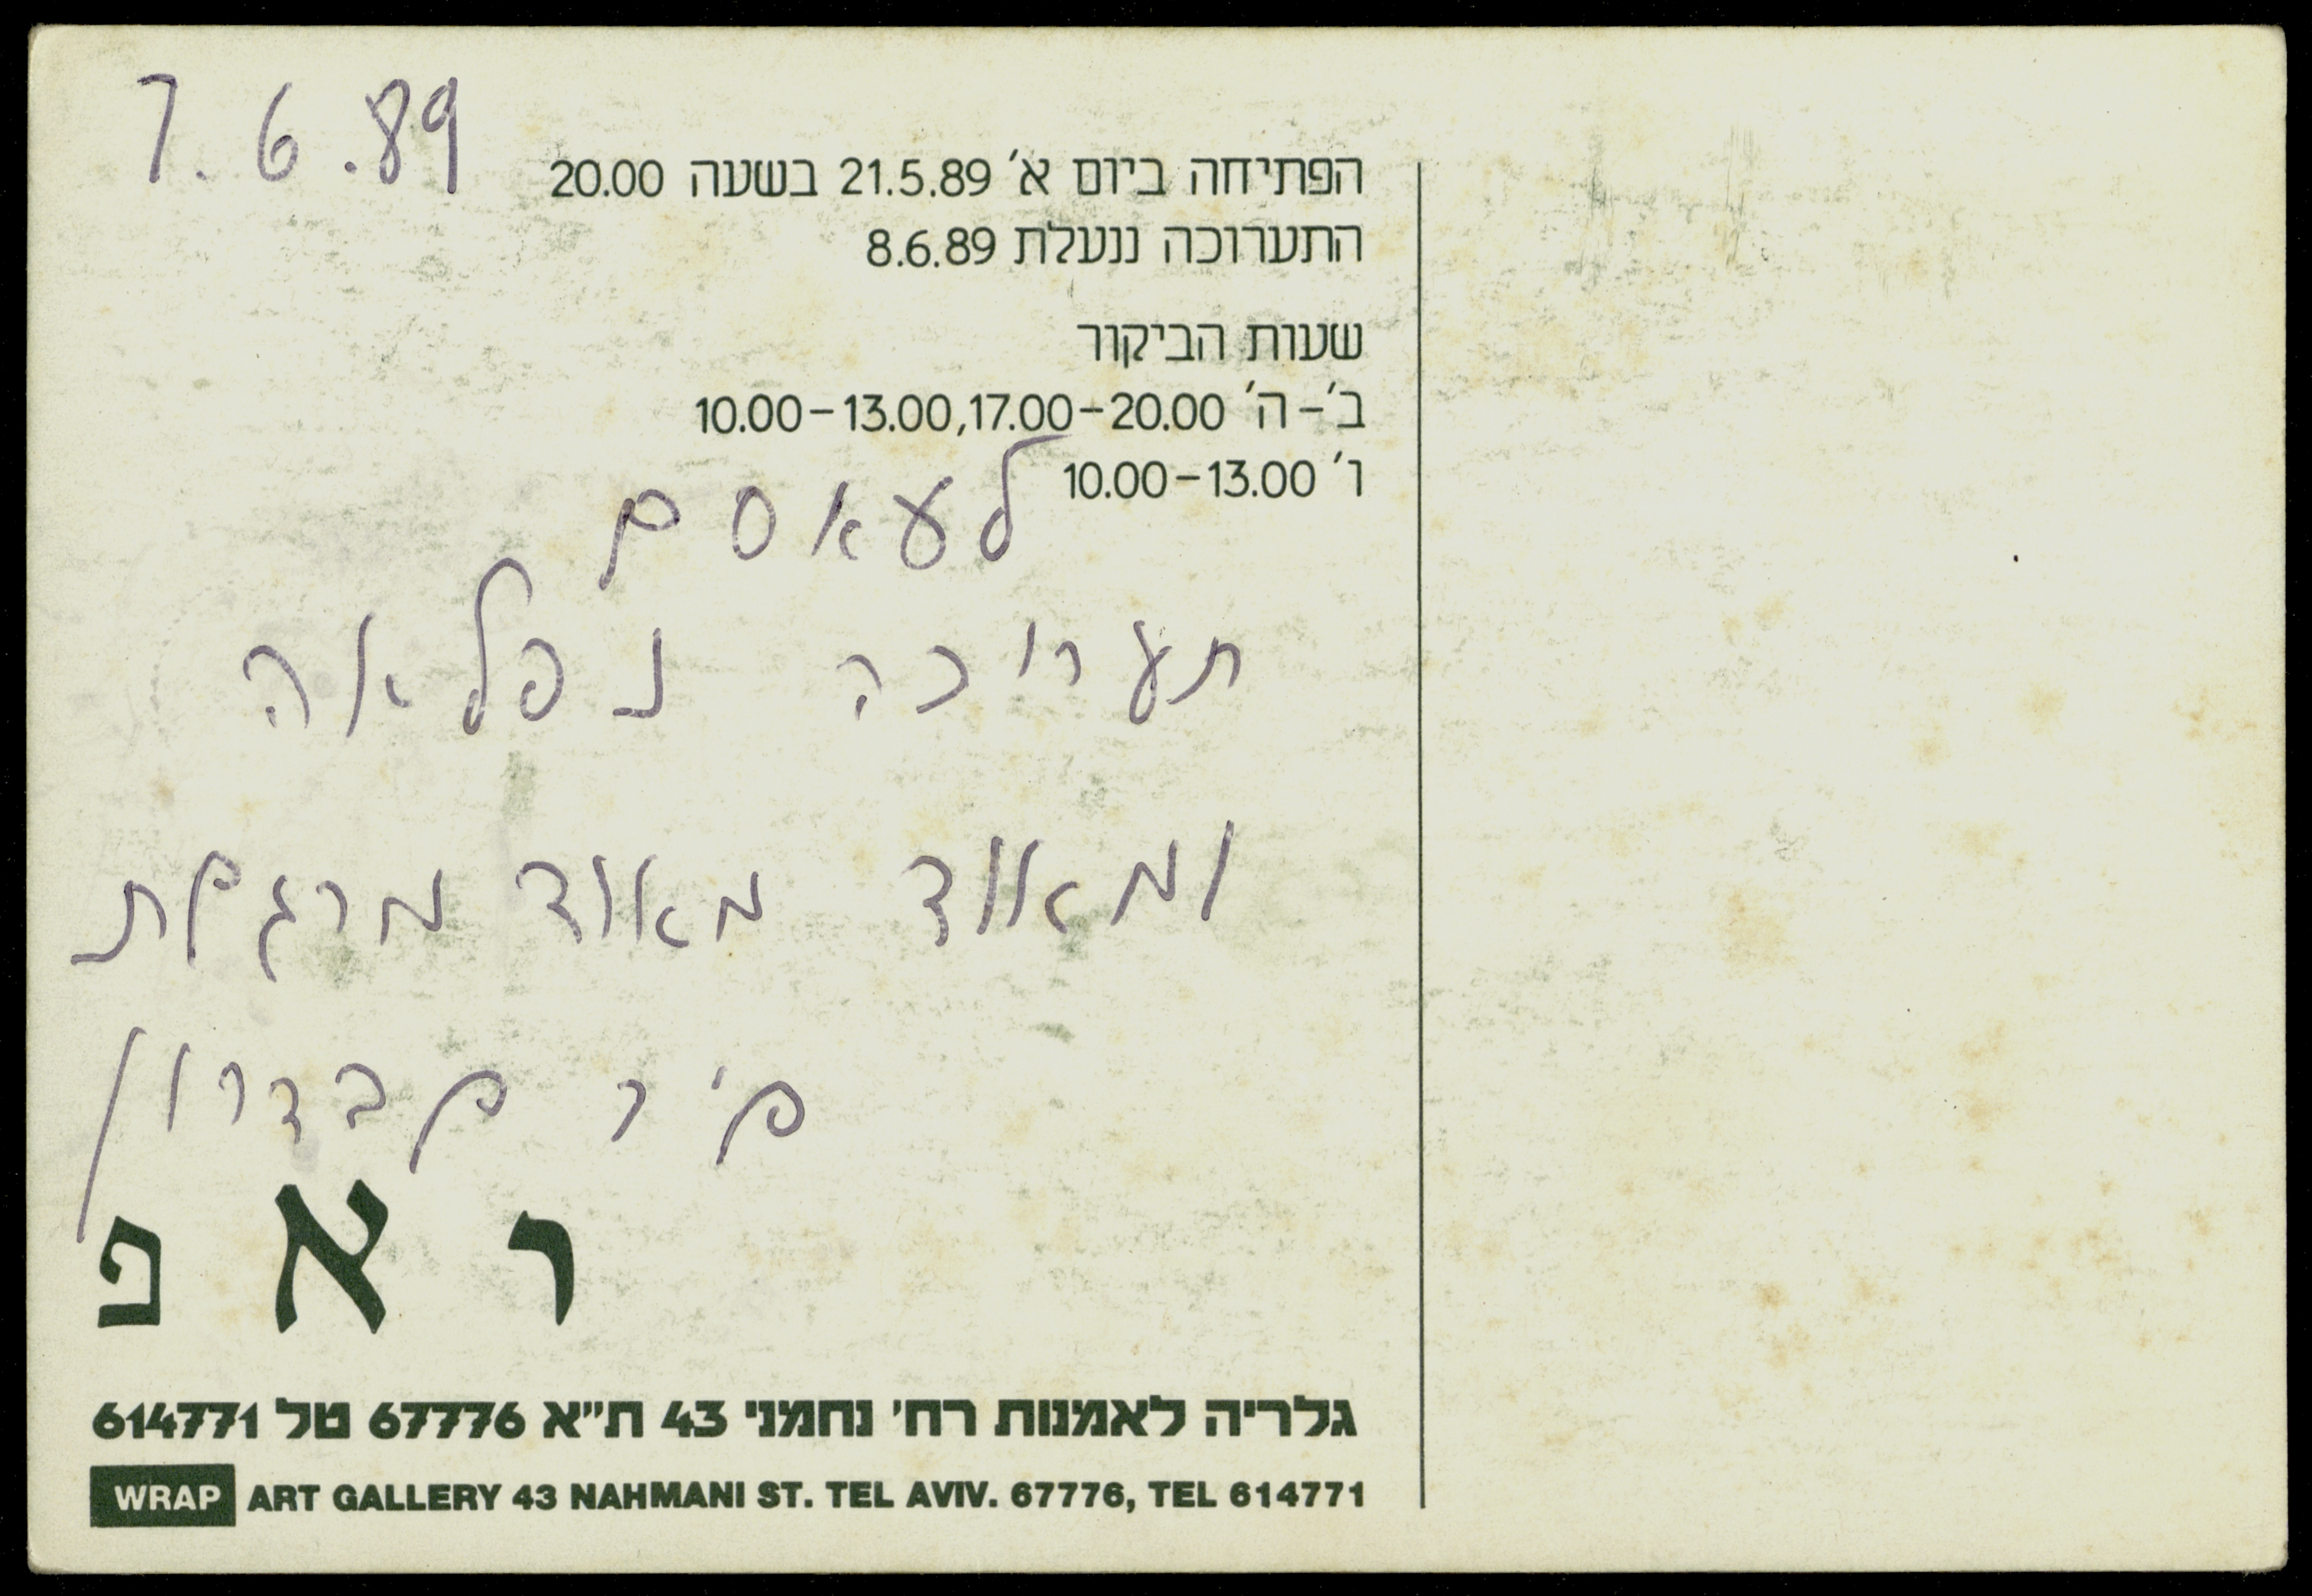 7.6.89
הפתיחה ביום א׳ 21.5.89 בשעה 20.00
התערוכה ננעלת 8.6.89
שעות הביקור
ב׳-ה׳ 10.00-13.00,17.00-20.00
ו׳ 10.00-13.00
לעאסם
תערוכה נפלאה
ומאוד מאוד מרגשת
שיר שבדרון
ראפ
גלריה לאמנות רח׳ נחמני 43 ת״א 67776 טל 614771
WRAP ART GALLERY 43 NAHMANI ST. TEL AVIV. 67776, TEL 614771